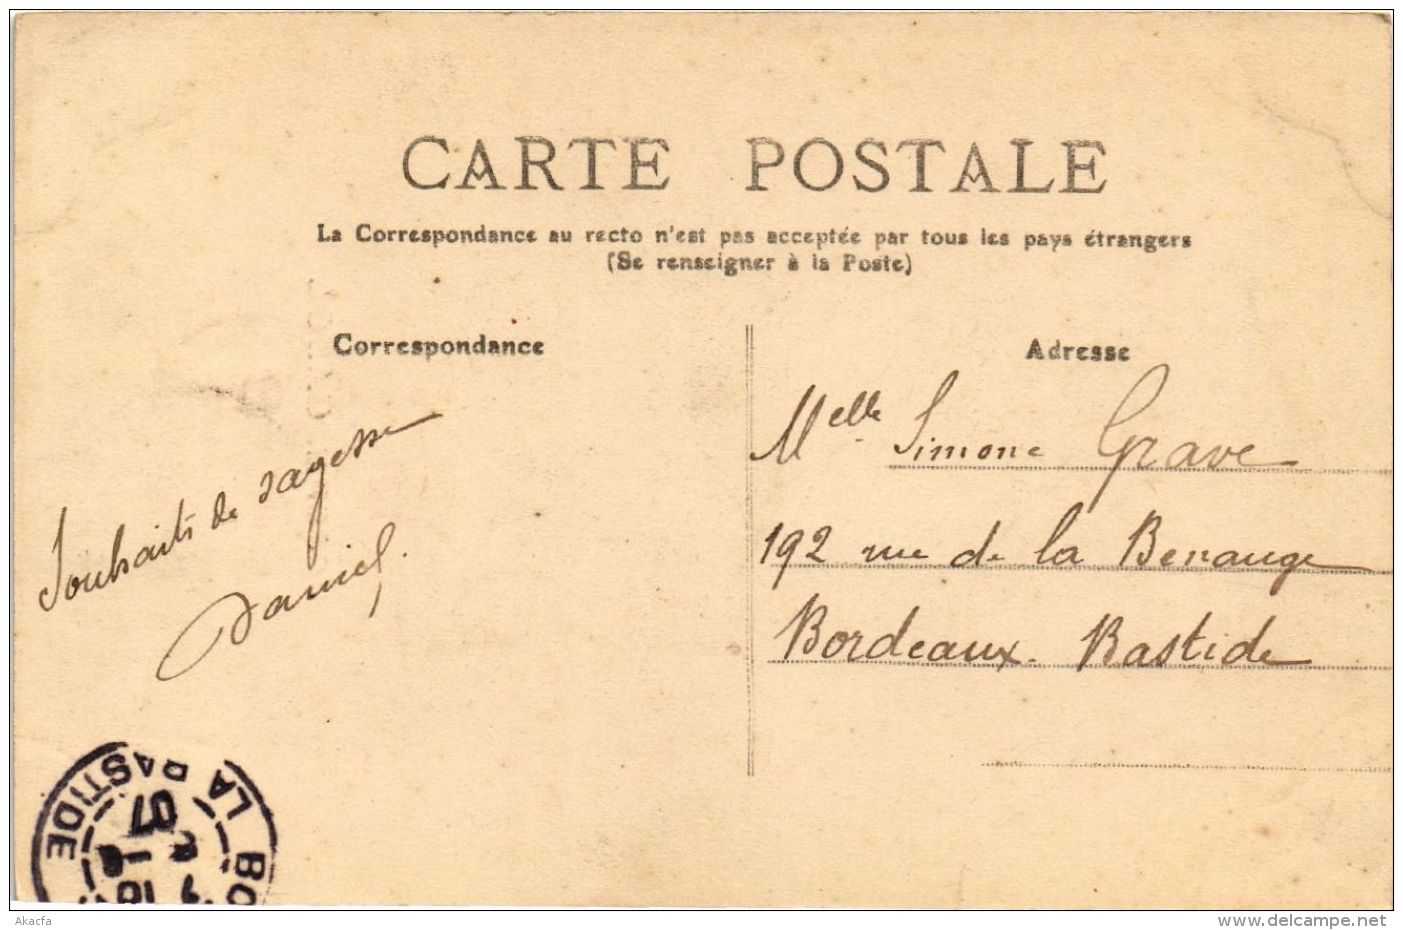 CARTE POSTALE
La Correspondance au recto n'est pas acceptée par tous les pays étrangers
(Se renseigner à la Poste)
Correspondance
Souhaits de sagesse
Daniel.
Adresse
Melle Simone Grave
192 rue de la Benauge
Bordeaux. Bastide
LA BASTIDE
07
Akacfa
www.delcampe.net